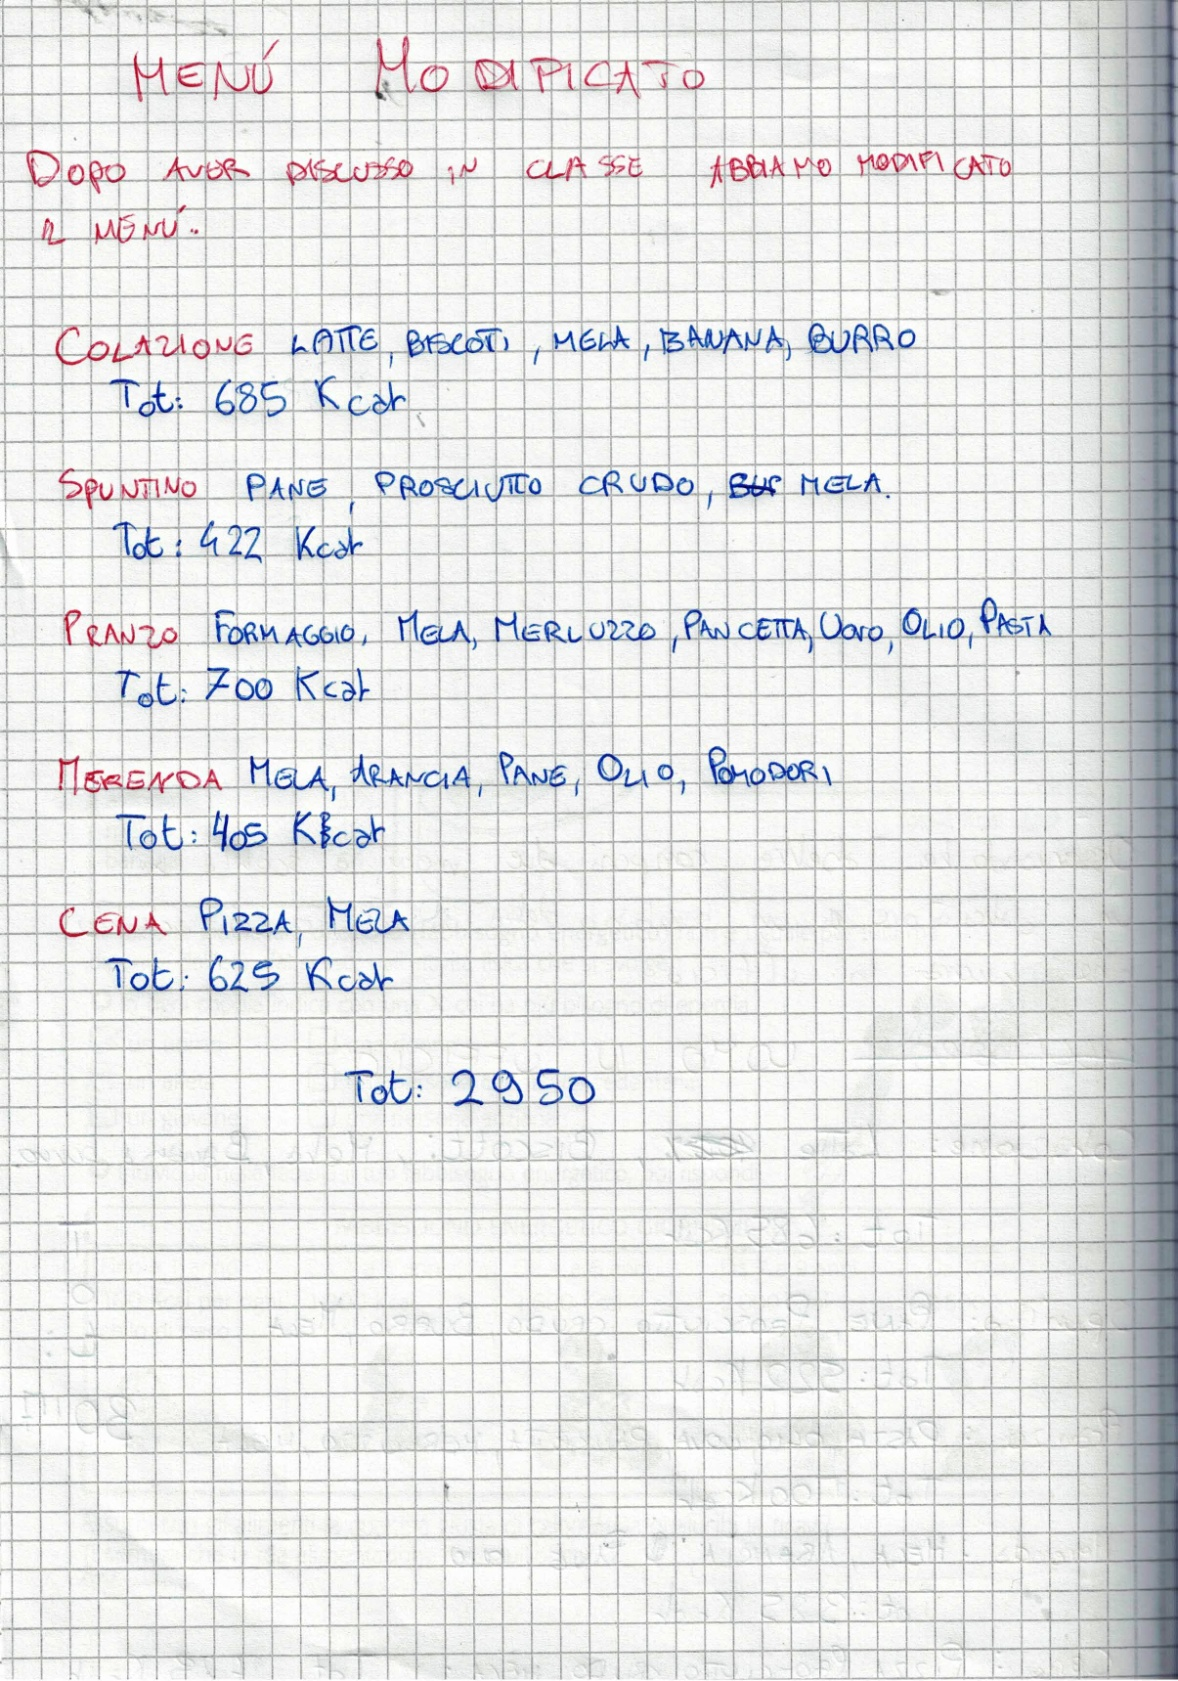 MENÚ MODIFICATO
DOPO AVER DISCUSSO IN CLASSE ABBIAMO MODIFICATO
IL MENÚ.
COLAZIONE LATTE, BISCOTI, MELA, BANANA, BURRO
Tot: 685 Kcal
SPUNTINO PANE, PROSCIUTTO CRUDO, MELA.
Tot: 422 Kcal
PRANZO FORMAGGIO, MELA, MERLUZZO, PANCETTA, UOVO, OLIO, PASTA
Tot: 700 Kcal
MERENDA MELA, ARANCIA, PANE, OLIO, POMODORI
Tot: 405 Kcal
CENA PIZZA, MELA
Tot: 625 Kcal
Tot: 2950